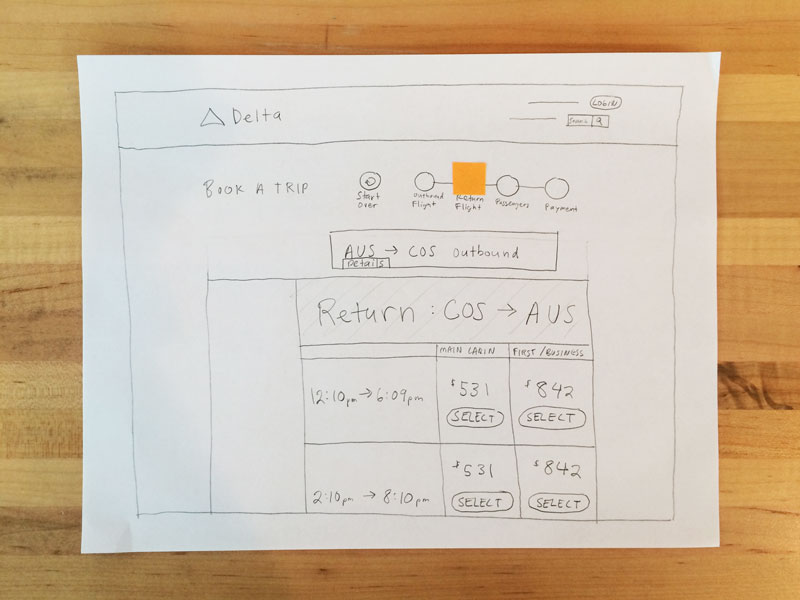 LOGIN
Delta
Search
BOOK A TRIP
Start Over
Outbound Flight
Return Flight
Passengers
Payment
AUS → COS outbound
Details
Return: COS → AUS
MAIN CABIN
FIRST/BUSINESS
12:10pm → 6:09pm
$531
$842
SELECT
SELECT
2:10pm → 8:10pm
$531
$842
SELECT
SELECT